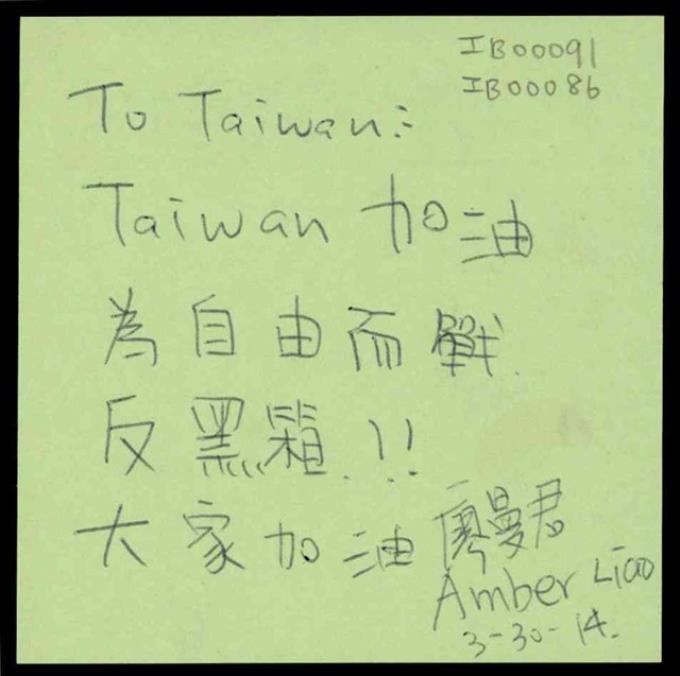 IB00091
IB00086
To Taiwan:
Taiwan 加油
為自由而戰.
反黑箱.!!
大家加油 廖曼君
Amber Liao
3-30-14.